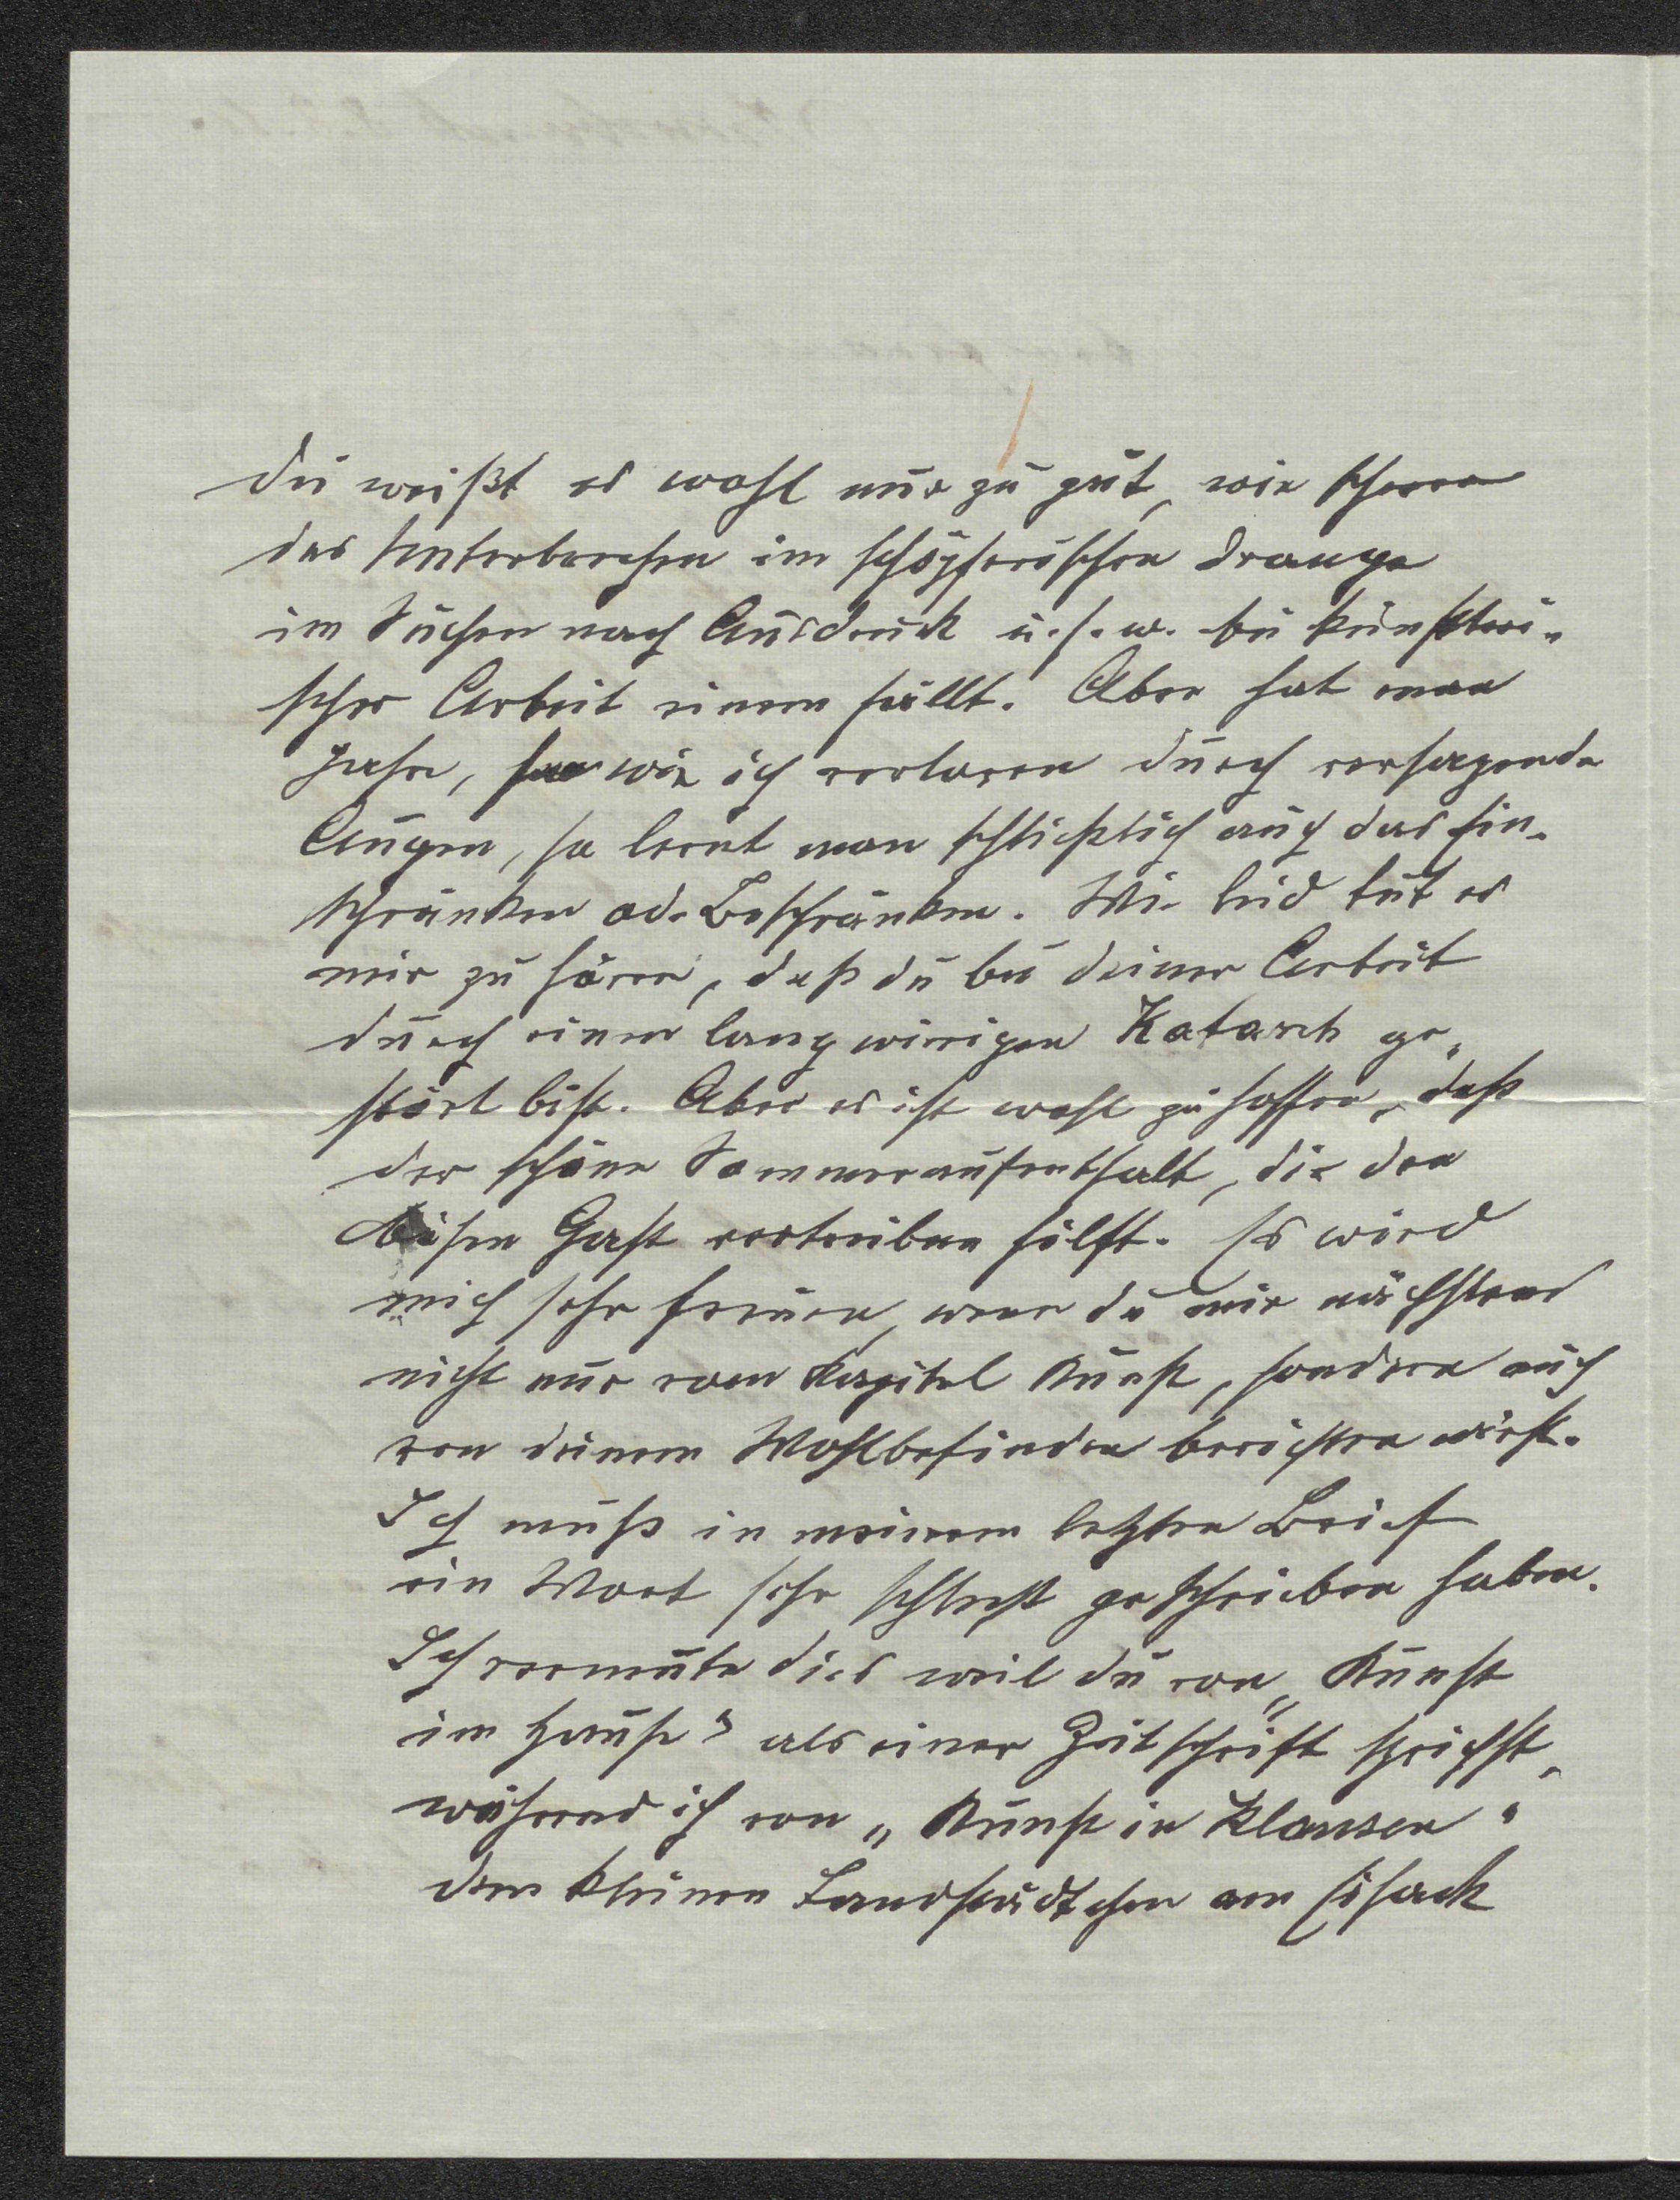 du weißt es wohl nur zu gut, wie schwer
das Unterbrechen im schöpferischen Drange
im Suchen nach Ausdruck u.s.w. bei künstleri-
scher Arbeit einem fällt. Aber hat man
Jahre, wie ich verloren durch versagende
Augen, so lernt man schließlich auch das Ein-
schränken od. Beschränken. Wie leid tut es
mir zu hören, daß du bei deiner Arbeit
durch einen langwierigen Katarrh ge-
stört bist. Aber es ist wohl zu hoffen, daß
der schöne Sommeraufenthalt, dir den
bösen Gast vertreiben hilft. Es wird
mich sehr freuen, wenn du mir nächstens
nicht nur vom Kapitel Kunst, sondern auch
von deinem Wohlbefinden berichten wirst.
Ich muß in meinem letzten Brief
ein Wort sehr schlecht geschrieben haben.
Ich vermute dies weil du von „Kunst
im Hause" als einer Zeitschrift sprichst,
während ich von „Kunst in Klausen"
dem kleinen Landstädtchen am Eisack